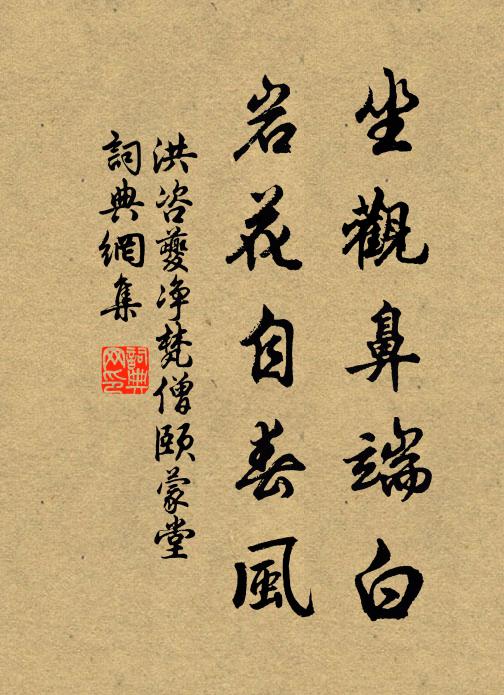 坐觀鼻端白
岩花自春風
洪咨夔净梵僧頤蒙堂
詞典網集
詞典網印